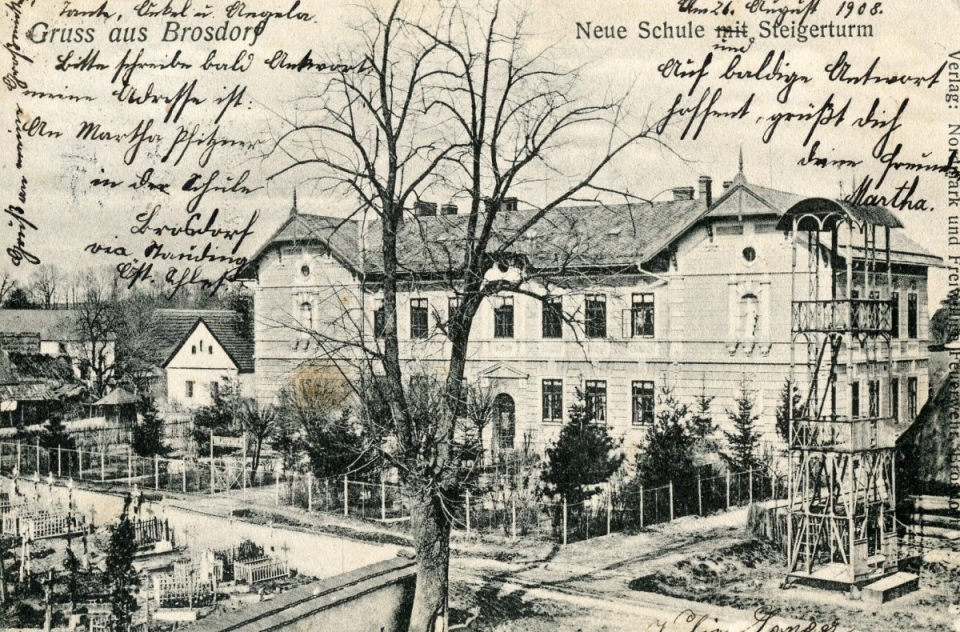 Tante, Onkel u. Angela
Gruss aus Brosdorf
Bitte schreibe bald Antwort
meine Adresse ist:
An Martha Pfitzner
in der Schule
Brosdorf
via Stauding
Öst. Schles
Am 26. August 1908.
Neue Schule mit Steigerturm
und
Auf baldige Antwort
hoffent, grüßt dich
deine Freundin
Martha.
Gruß an
Verlag: Nordpark und Freiwillige Feuerwehr